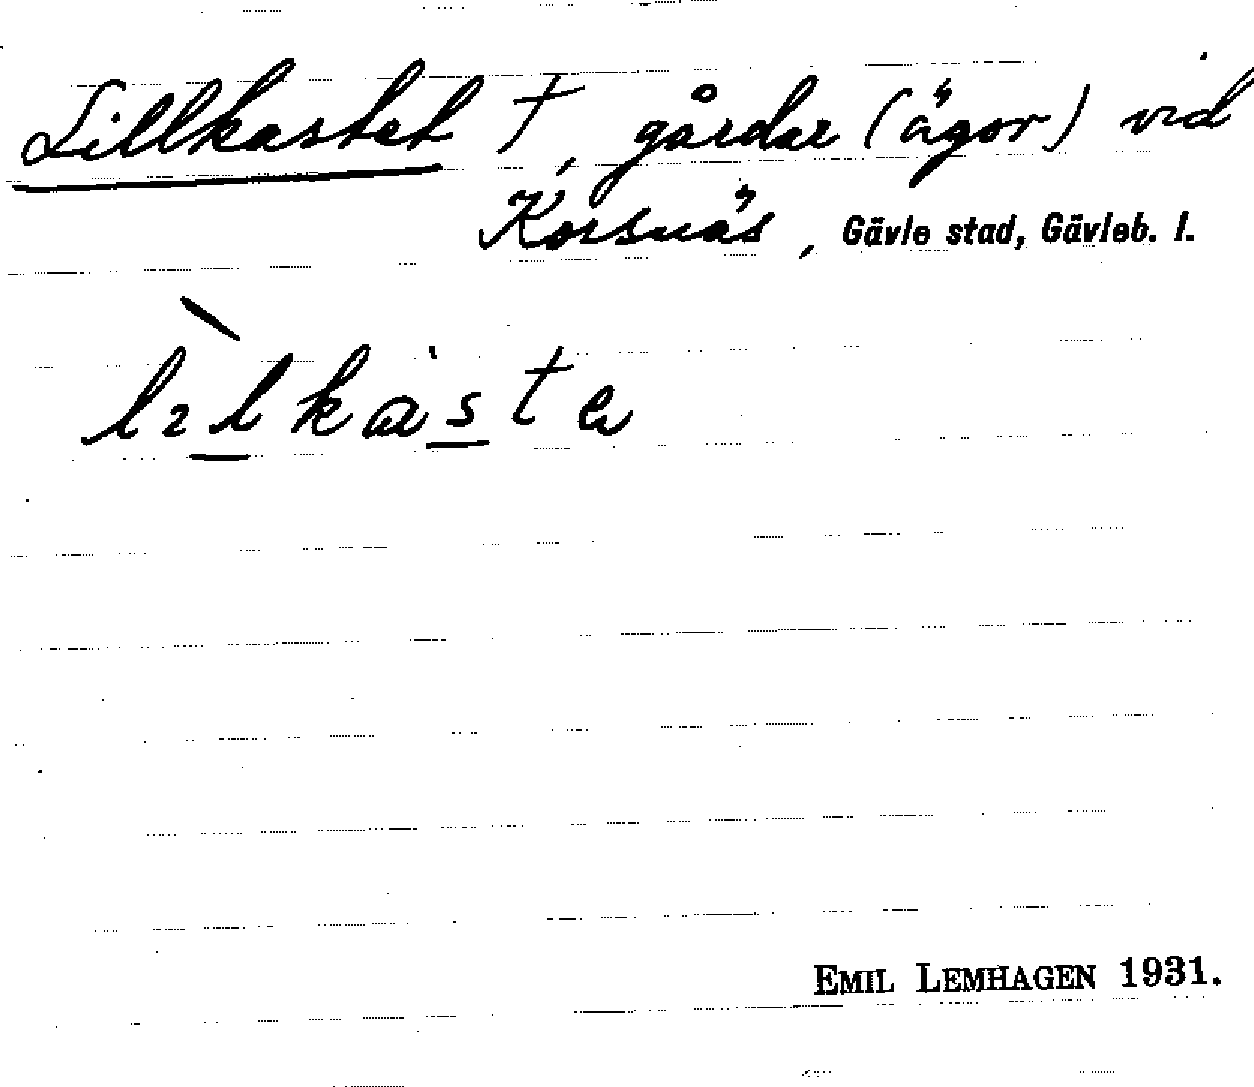 Lillkastet †, gårdar (ägor) vid
Korsnäs, Gävle stad, Gävleb. l.
lılkaste
EMIL LEMHAGEN 1931.